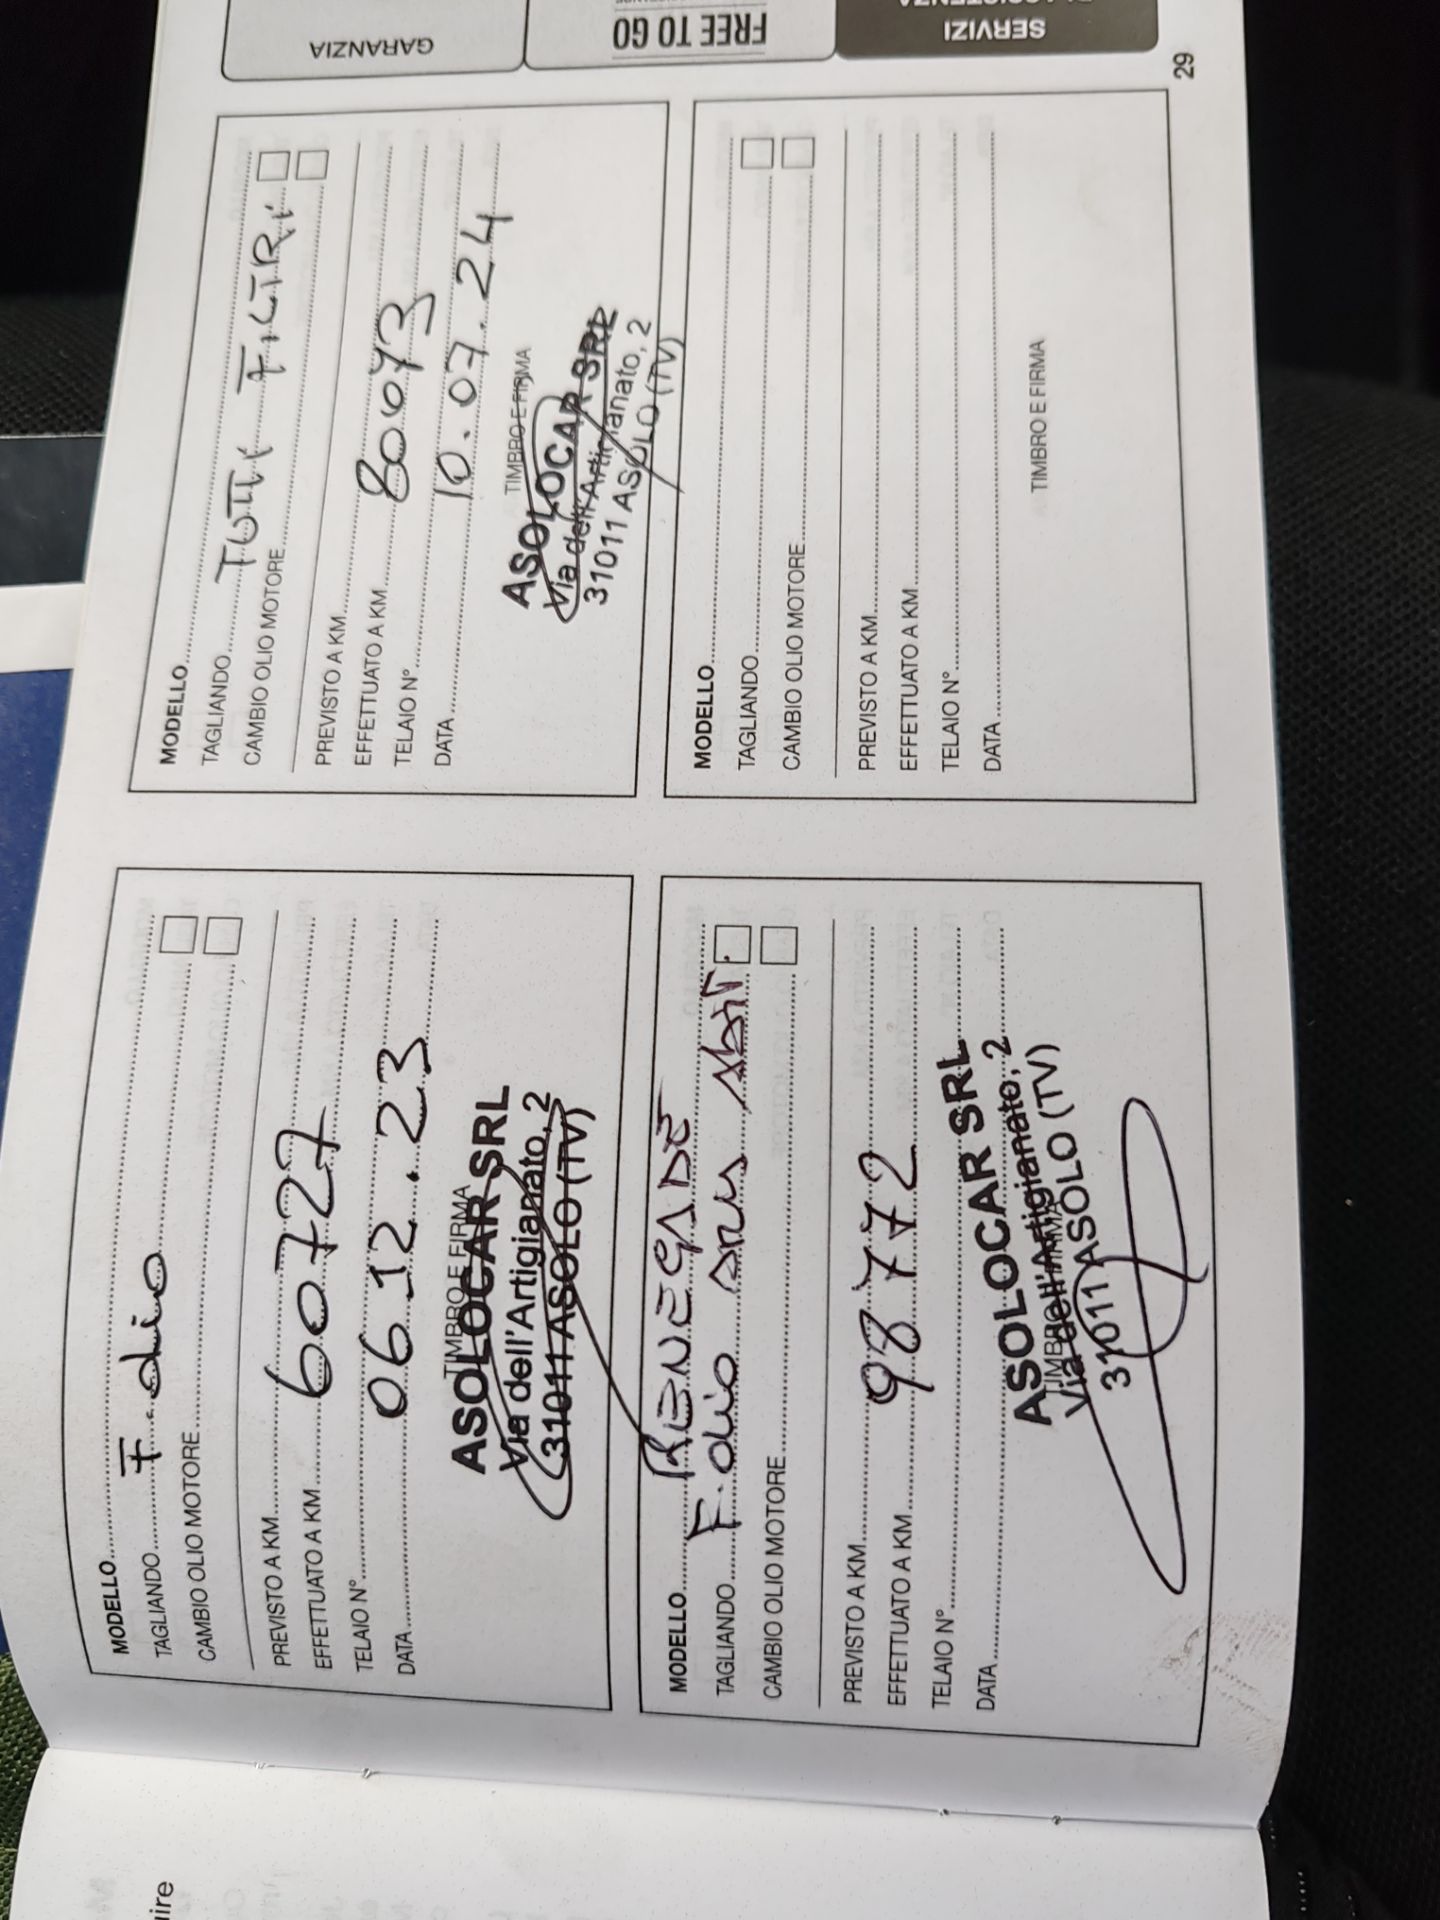 MODELLO
TAGLIANDO F. olio
CAMBIO OLIO MOTORE
PREVISTO A KM
EFFETTUATO A KM 60727
TELAIO N°
DATA 06.12.23
TIMBRO E FIRMA
ASOLOCAR SRL
Via dell'Artigianato, 2
31011 ASOLO (TV)
MODELLO
TAGLIANDO TUTTI FILTRI
CAMBIO OLIO MOTORE
PREVISTO A KM
EFFETTUATO A KM 80073
TELAIO N°
DATA 10.07.24
TIMBRO E FIRMA
ASOLOCAR SRL
Via dell'Artigianato, 2
31011 ASOLO (TV)
MODELLO RENEGADE
TAGLIANDO F. olio
CAMBIO OLIO MOTORE
PREVISTO A KM
EFFETTUATO A KM 98772
TELAIO N°
DATA
TIMBRO E FIRMA
ASOLOCAR SRL
Via dell'Artigianato, 2
31011 ASOLO (TV)
MODELLO
TAGLIANDO
CAMBIO OLIO MOTORE
PREVISTO A KM
EFFETTUATO A KM
TELAIO N°
DATA
TIMBRO E FIRMA
GARANZIA
FREE TO GO
SERVIZI
29